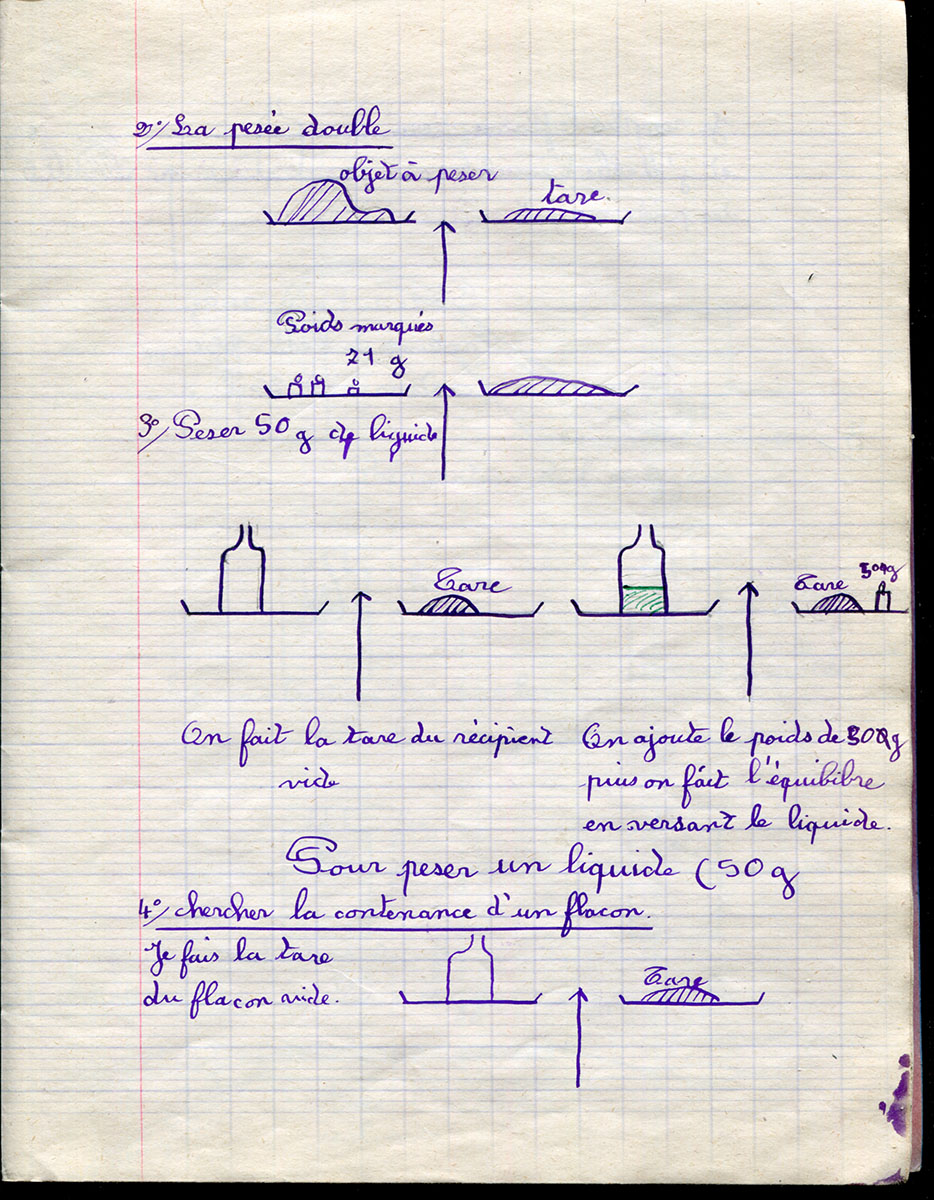 2°/ La pesée double
objet à peser
tare.
Poids marqués
71 g
3°/ Peser 50 g de liquide
Tare
Tare
On fait la tare du récipient
vide
On ajoute le poids de
puis on fait l'équibibre
en versant le liquide.
Pour peser un liquide (50 g
4°/ chercher la contenance d'un flacon.
Je fais la tare
du flacon vide.
Tare